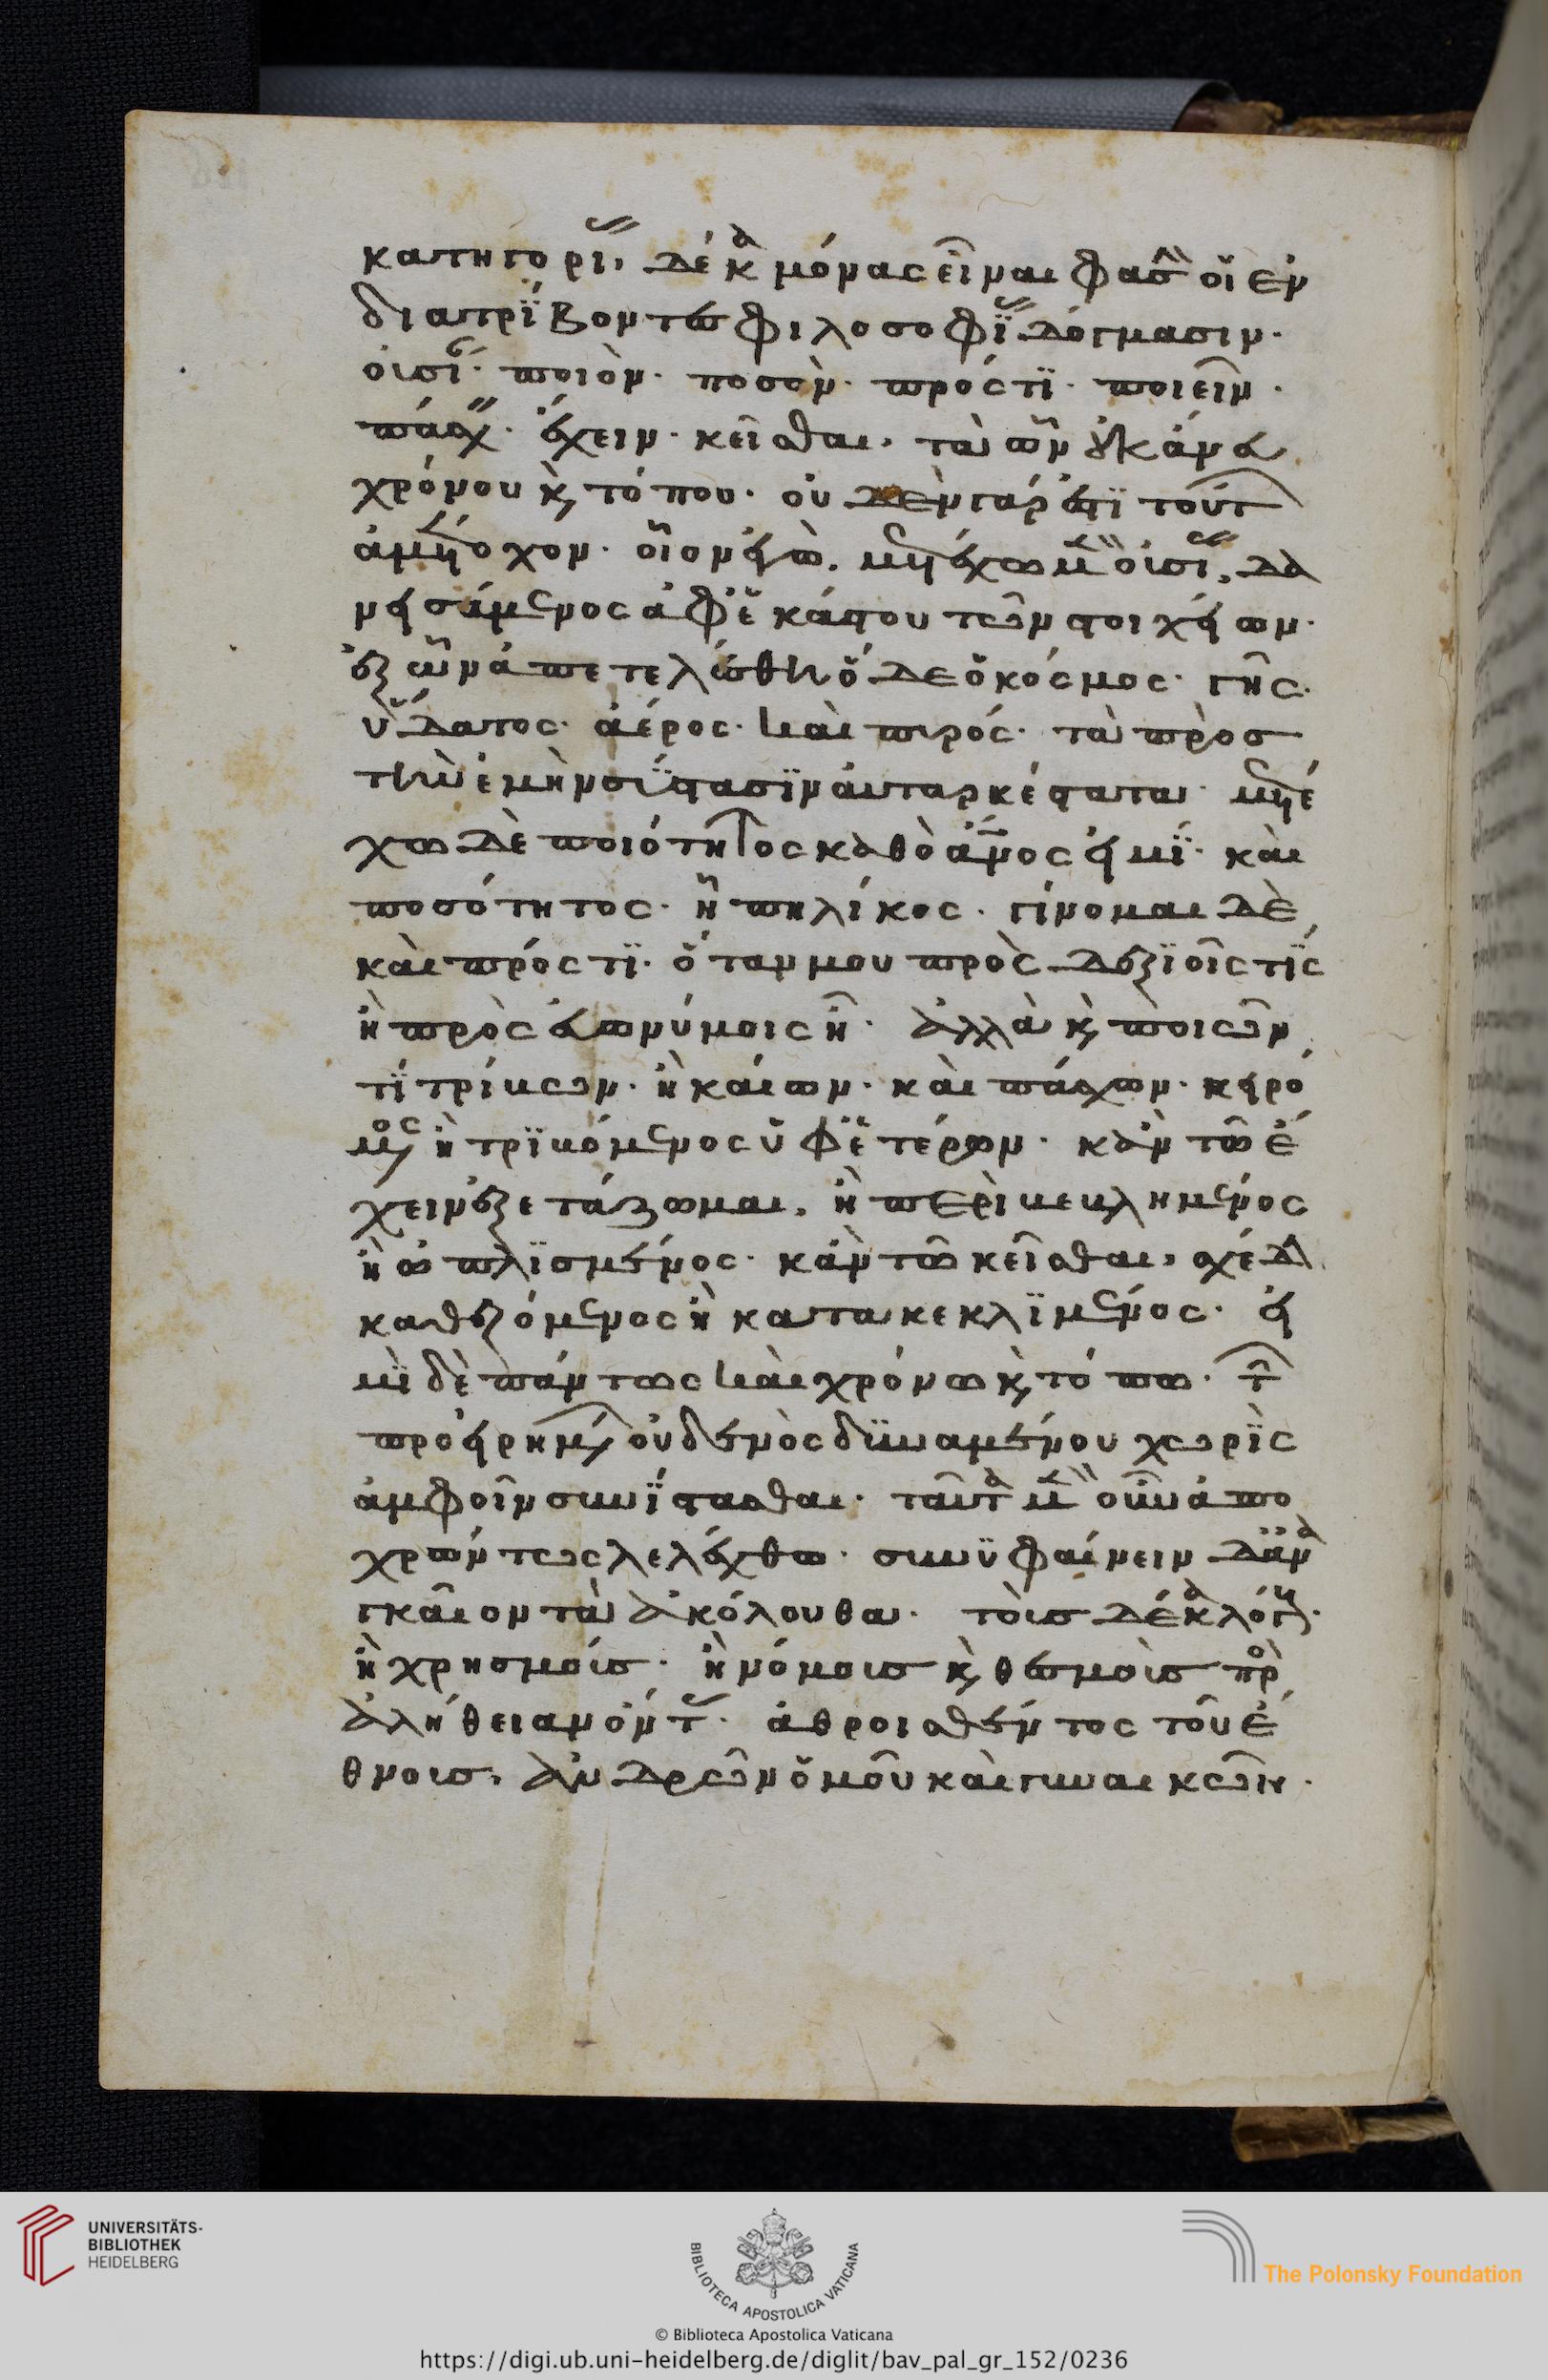 κατηγορί δέκα μόνας εἶναι φασὶν οἱ ἐν
διατρίβοντες φιλοσοφί δόγμασιν·
οὐσί· ποιὸν· ποσὸν· πρόςτϊ· ποιεῖν·
πάσχ· ἔχειν· κεῖσθαι· τὰ ὧν οὐκ ἄνευ
χρόνου κ τόπου· οὐδὲν γάρ ἐστϊ τούτ
ἀμέτοχον· οἷον ἐγὼ· μετέχω μ οὐσί· δα
νεισάμενος ἀφ' ἑκάστου τῶν στοιχείων·
ἐξ ὧν ἀπετελέσθη ὅδε ὁ κόσμος· γῆς·
ὕδατος· ἀέρος· καὶ πυρός· τὰ πρὸσ
τὴν ἐμὴν σύστασϊν αὐταρκέστατα· μετέ
χω δὲ ποιότητος καθὸ ἄνος εἰμϊ· καὶ
ποσότητος· ᾗ πηλίκος· γίνομαι δὲ
καὶ πρόςτϊ· ὅταν μου πρὸς δεξϊοῖς τϊς
ἢ πρὸς εὐωνύμοις ᾖ· ἀλλὰ κ ποιῶν
τϊ τρίβων· ἢ καίων· καὶ πάσχων· κειρό
μος ἢ τρϊβόμενος ὑφ' ἑτέρων· κἀν τῶ ἔ
χειν ἐξετάζωμαι· ἢ περιβεβλημένος
ἢ ὡπλϊσμένος· κἀν τῶ κεῖσθαι·
καθεζόμενος ἢ κατακεκλϊμένος· εἰ
μϊ δὲ πάντως καὶ χρόνω κ τόπω· τ
προειρημ οὐδενὸς δυναμένου χωρὶς
ἀμφοῖν συνίστασθαι· ταῦτα μ οὖν ἀπο
χρώντως λελέχθω· συνυφαίνειν δ' ἀνα
γκαῖον τὰ ἀκόλουθα· τοῖσ δέκα λόγ·
ἢ χρησμοῖσ· ἢ νόμοισ κ θεσμοῖσ πρὸ
ἀλήθειαν ὄντ· ἀθροισθέντος τοῦ ἔ
θνοισ· ἀνδρῶν ὁμοῦ καὶ γυναικῶν·
UNIVERSITÄTS-
BIBLIOTHEK
HEIDELBERG
BIBLIOTECA APOSTOLICA VATICANA
The Polonsky Foundation
© Biblioteca Apostolica Vaticana
https://digi.ub.uni-heidelberg.de/diglit/bav_pal_gr_152/0236